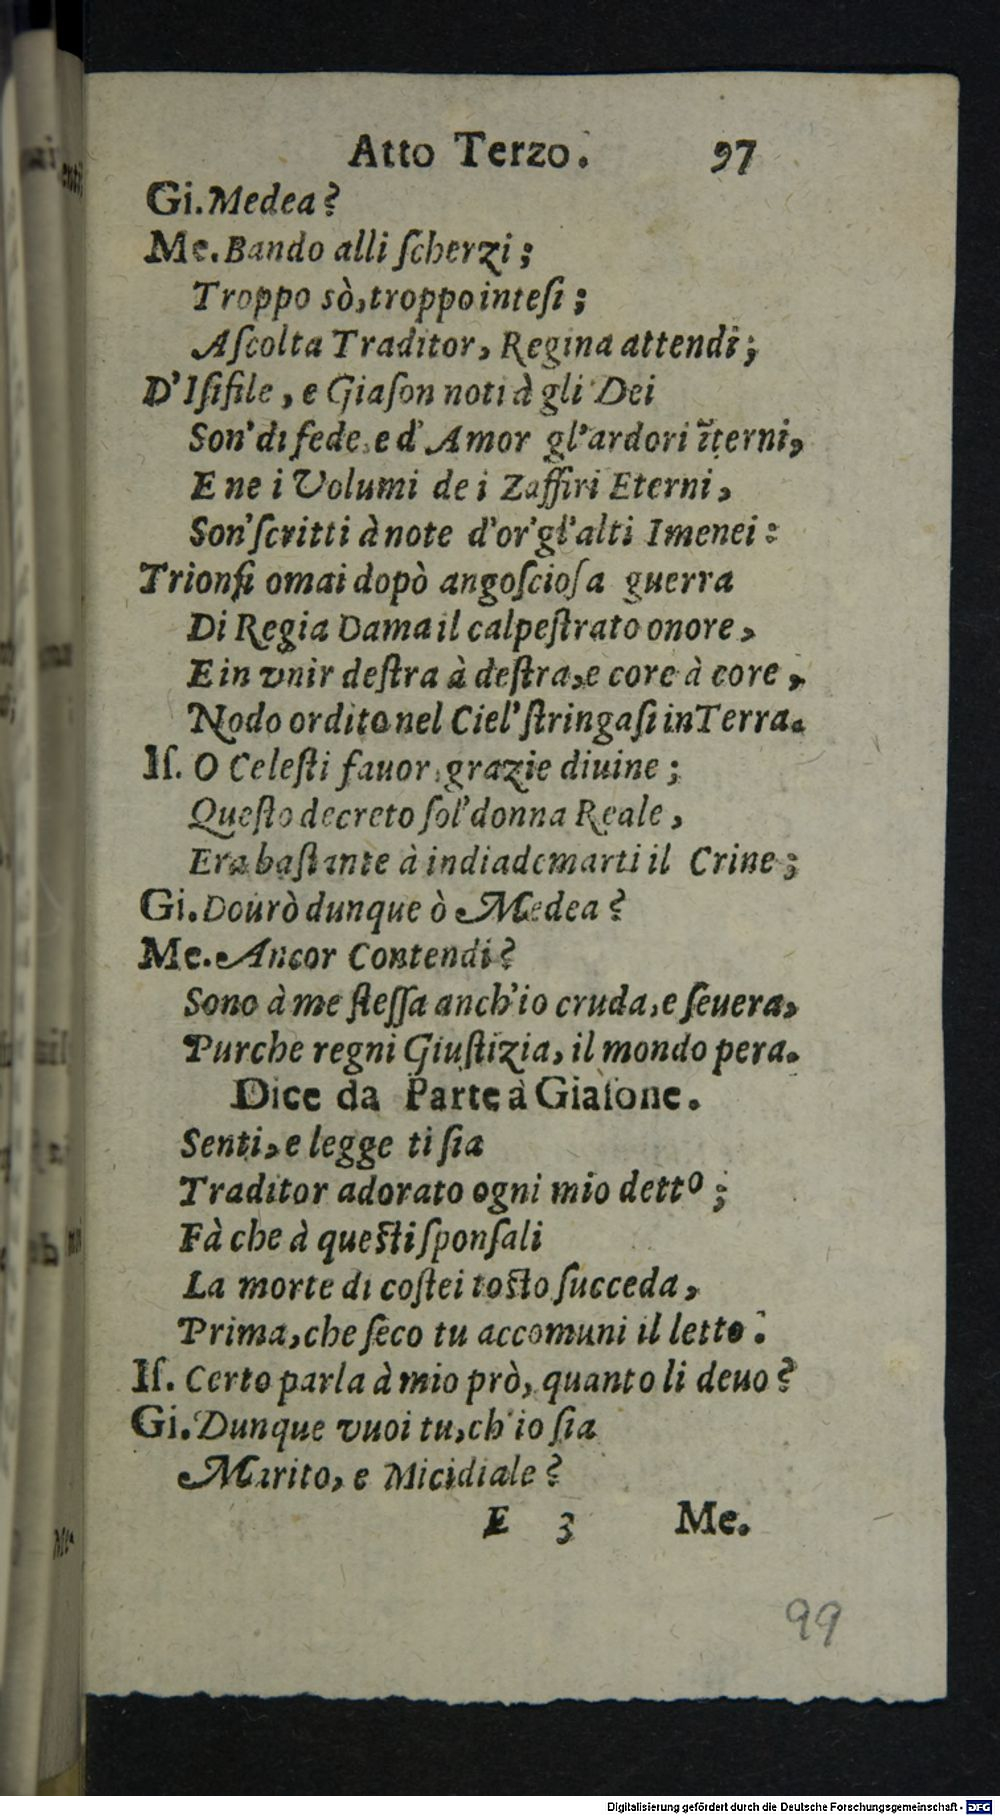 Atto Terzo. 97
Gi. Medea?
Me. Bando alli ſcherzi;
Troppo sò, troppo inteſi;
Aſcolta Traditor, Regina attendi;
D'Iſifile, e Giaſon noti à gli Dei
Son' di fede, e d'Amor gl'ardori ĩterni,
E ne i Volumi de i Zaffiri Eterni,
Son' ſcritti à note d'or' gl'alti Imenei:
Trionfi omai dopò angoſcioſa guerra
Di Regia Dama il calpeſtrato onore,
E in vnir deſtra à deſtra, e core à core,
Nodo ordito nel Ciel' ſtringaſi in Terra.
Iſ. O Celeſti fauor, grazie diuine;
Queſto decreto ſol' donna Reale,
Era baſtante à indiademarti il Crine;
Gi. Dourò dunque ò Medea?
Me. Ancor Contendi?
Sono à me ſteſſa anch'io cruda, e ſeuera,
Purche regni Giuſtizia, il mondo pera.
Dice da Parte à Giaſone.
Senti, e legge ti ſia
Traditor adorato ogni mio detto;
Fà che à queſti ſponſali
La morte di coſtei toſto ſucceda,
Prima, che ſeco tu accomuni il letto.
Iſ. Certo parla à mio prò, quanto li deuo?
Gi. Dunque vuoi tu, ch'io ſia
Marito, e Micidiale?
E 3 Me.
99
Digitalisierung gefördert durch die Deutsche Forschungsgemeinschaft - DFG